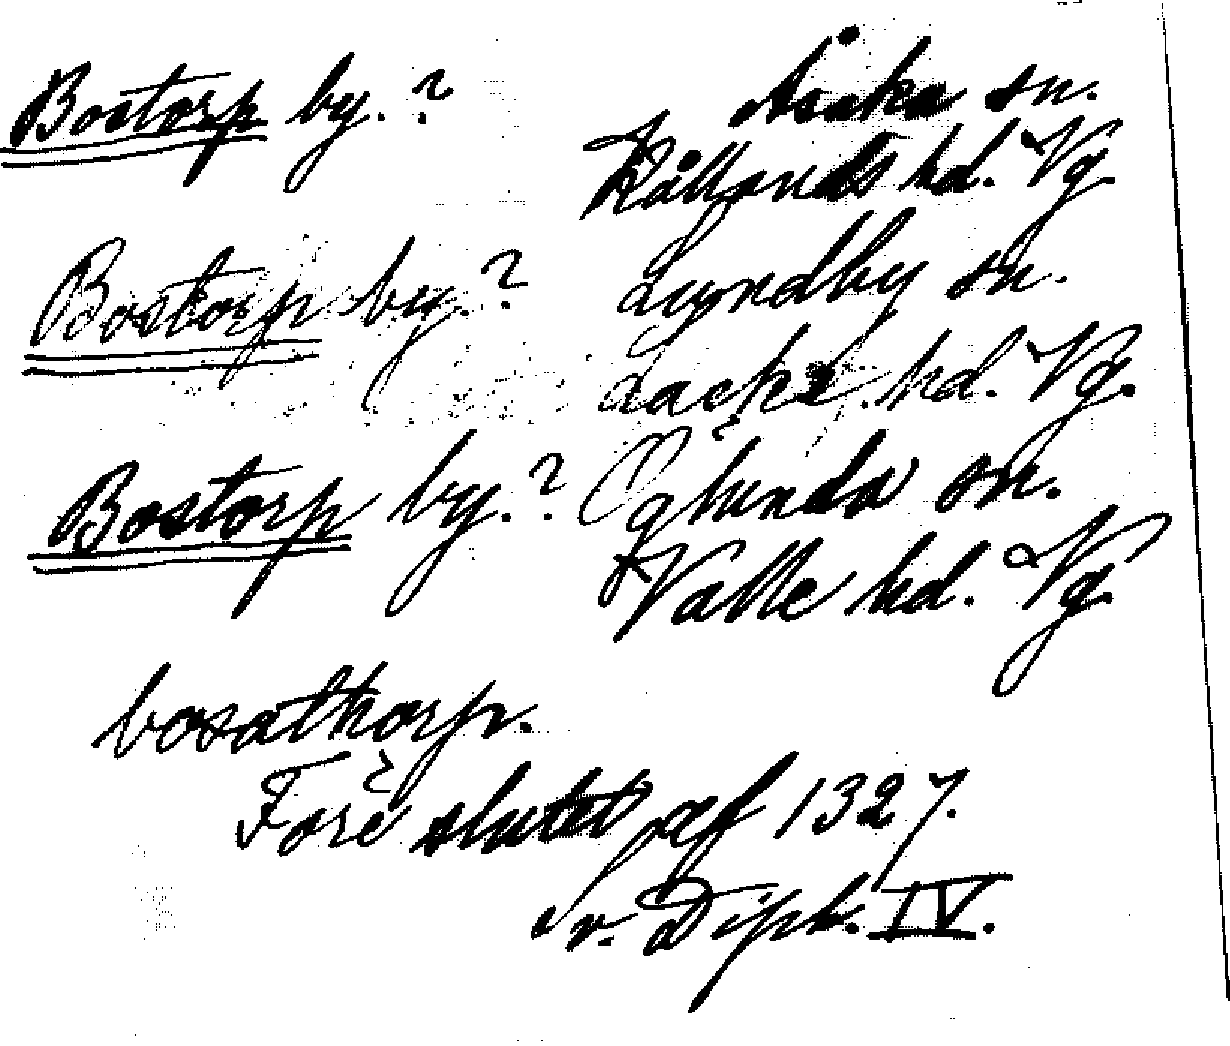 Bostorp by.? Åsaka sn.
Kållands hd. Vg.
Bostorp by.? Lyndby sn.
Lacke hd. Vg.
Bostorp by.? Öglunda sn.
Valle hd. Vg.
bosathorp.
Före slutet af 1327.
Sv. Dipl. IV.